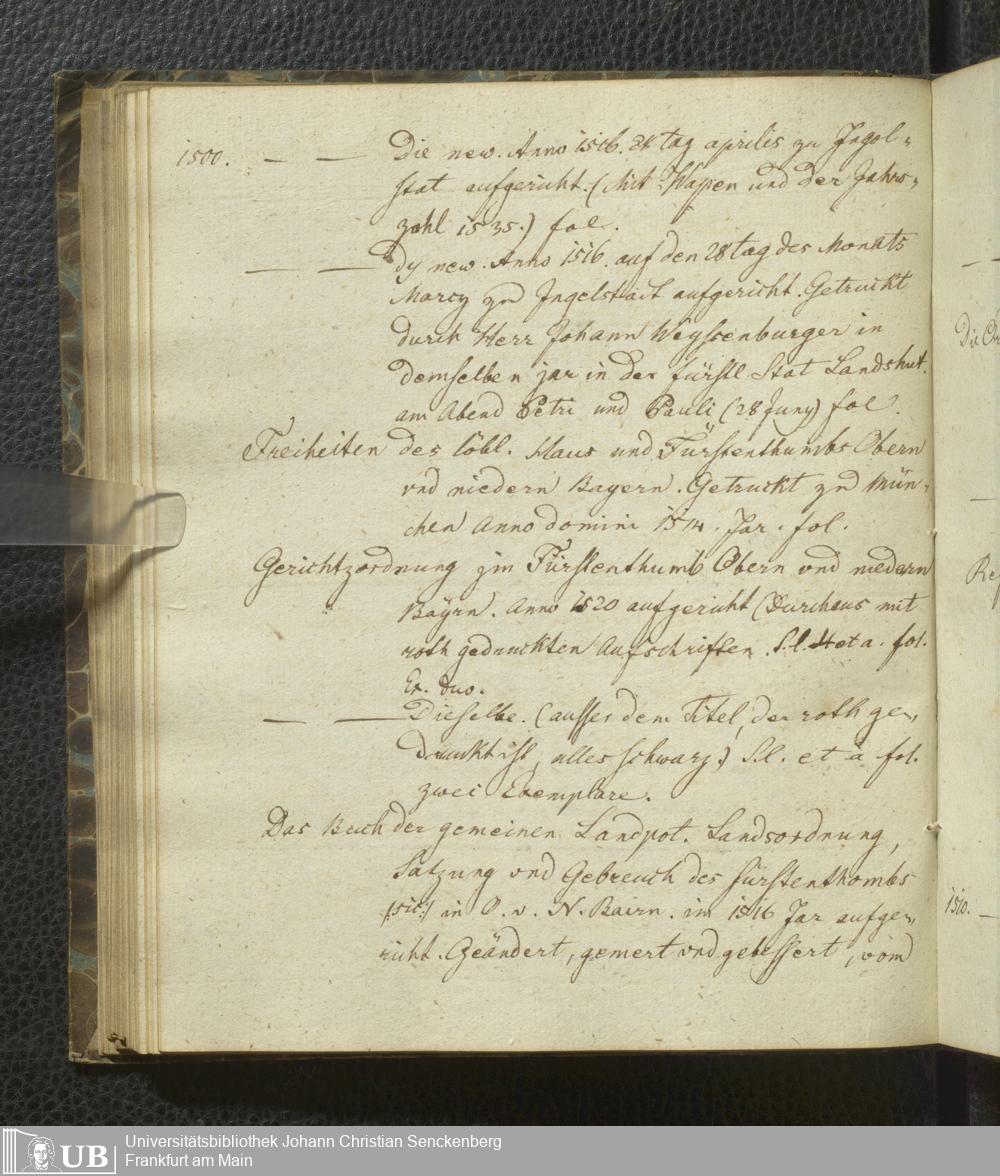 1500. — — Die new. Anno 1516. 28 tag aprilis zu Ingol=
stat aufgericht. (Mit Wappen und der Jahrs=
zahl 1535.) fol.
— — Dy new. Anno 1516. auf den 28 tag des Monats
Marcy zu Ingelstait aufgericht. Getruckt
durch Herr Johann Weyssenburger in
demselben jar in der fürstl Stat Landshut.
am Abend Petri und Pauli (28 Juny) fol.
Freiheiten des löbl. Haus und Fürstenthumbs Obern
vnd niedern Bayern. Getruckt zu Mün=
chen Anno domini 1514. Jar. fol.
Gerichtzordnung jm Fürstenthumb Obern vnd niedern
Bayrn. Anno 1520 aufgericht (Durchaus mit
roth gedruckten Aufschriften. S. l. et a. fol.
Ex. duo.
— — Dieselbe. (ausser dem Titel, der roth ge=
druckt ist, alles schwarz.) S. l. et a fol.
zwei Exemplare.
Das Buch der gemeinen Landpot. Landsordnung,
Satzung vnd Gebreuch des fürstenthombs
(sic!) in O. v. N. Bairn. im 1516 Jar aufge=
richt. Geändert, gemert vnd gebessert, vom
Die
Re
1510. —
UB
Universitätsbibliothek Johann Christian Senckenberg
Frankfurt am Main